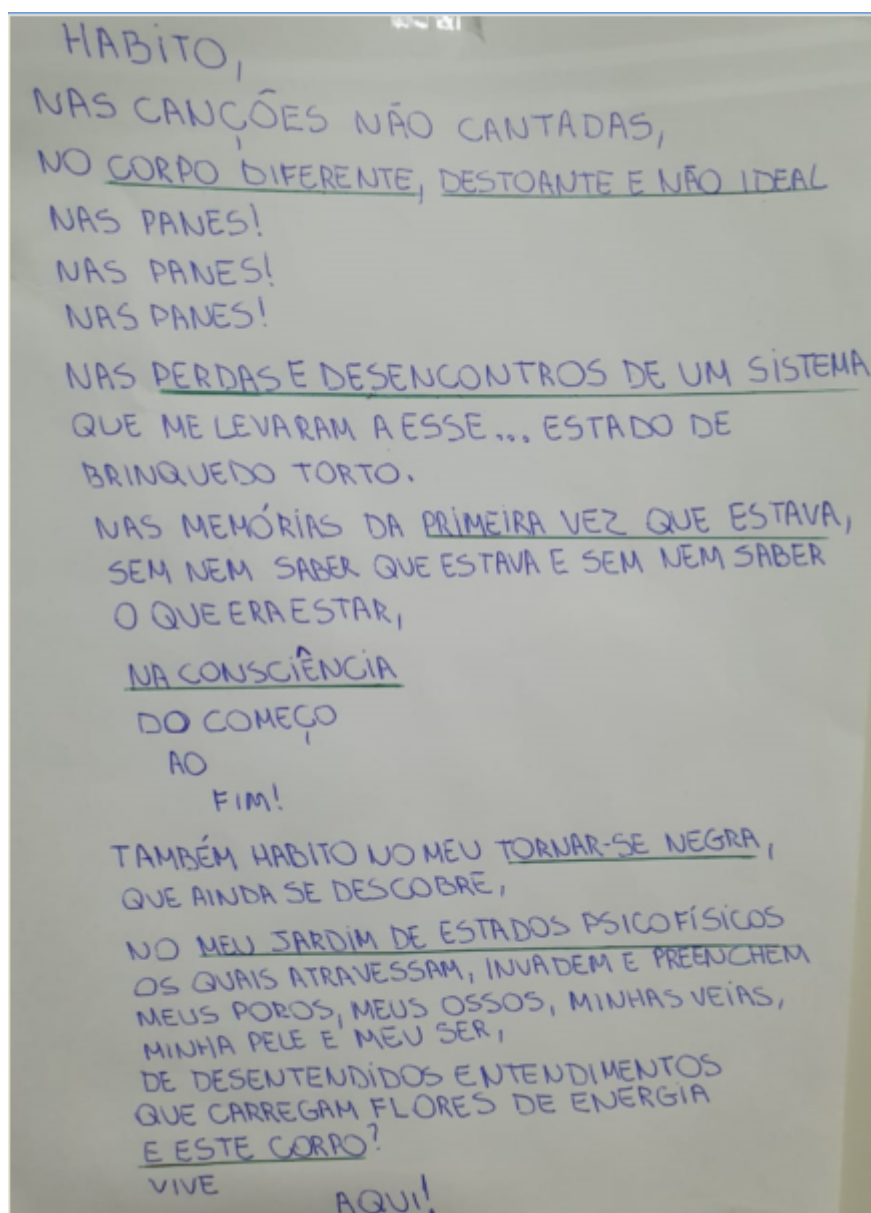 HABITO,
NAS CANÇÕES NÃO CANTADAS,
NO CORPO DIFERENTE, DESTOANTE E NÃO IDEAL
NAS PANES!
NAS PANES!
NAS PANES!
NAS PERDAS E DESENCONTROS DE UM SISTEMA
QUE ME LEVARAM A ESSE... ESTADO DE
BRINQUEDO TORTO.
NAS MEMÓRIAS DA PRIMEIRA VEZ QUE ESTAVA,
SEM NEM SABER QUE ESTAVA E SEM NEM SABER
O QUE ERA ESTAR,
NA CONSCIÊNCIA
DO COMEÇO
AO
FIM!
TAMBÉM HABITO NO MEU TORNAR-SE NEGRA,
QUE AINDA SE DESCOBRE,
NO MEU JARDIM DE ESTADOS PSICOFÍSICOS
OS QUAIS ATRAVESSAM, INVADEM E PREENCHEM
MEUS POROS, MEUS OSSOS, MINHAS VEIAS,
MINHA PELE E MEU SER,
DE DESENTENDIDOS ENTENDIMENTOS
QUE CARREGAM FLORES DE ENERGIA
E ESTE CORPO?
VIVE
AQUI!